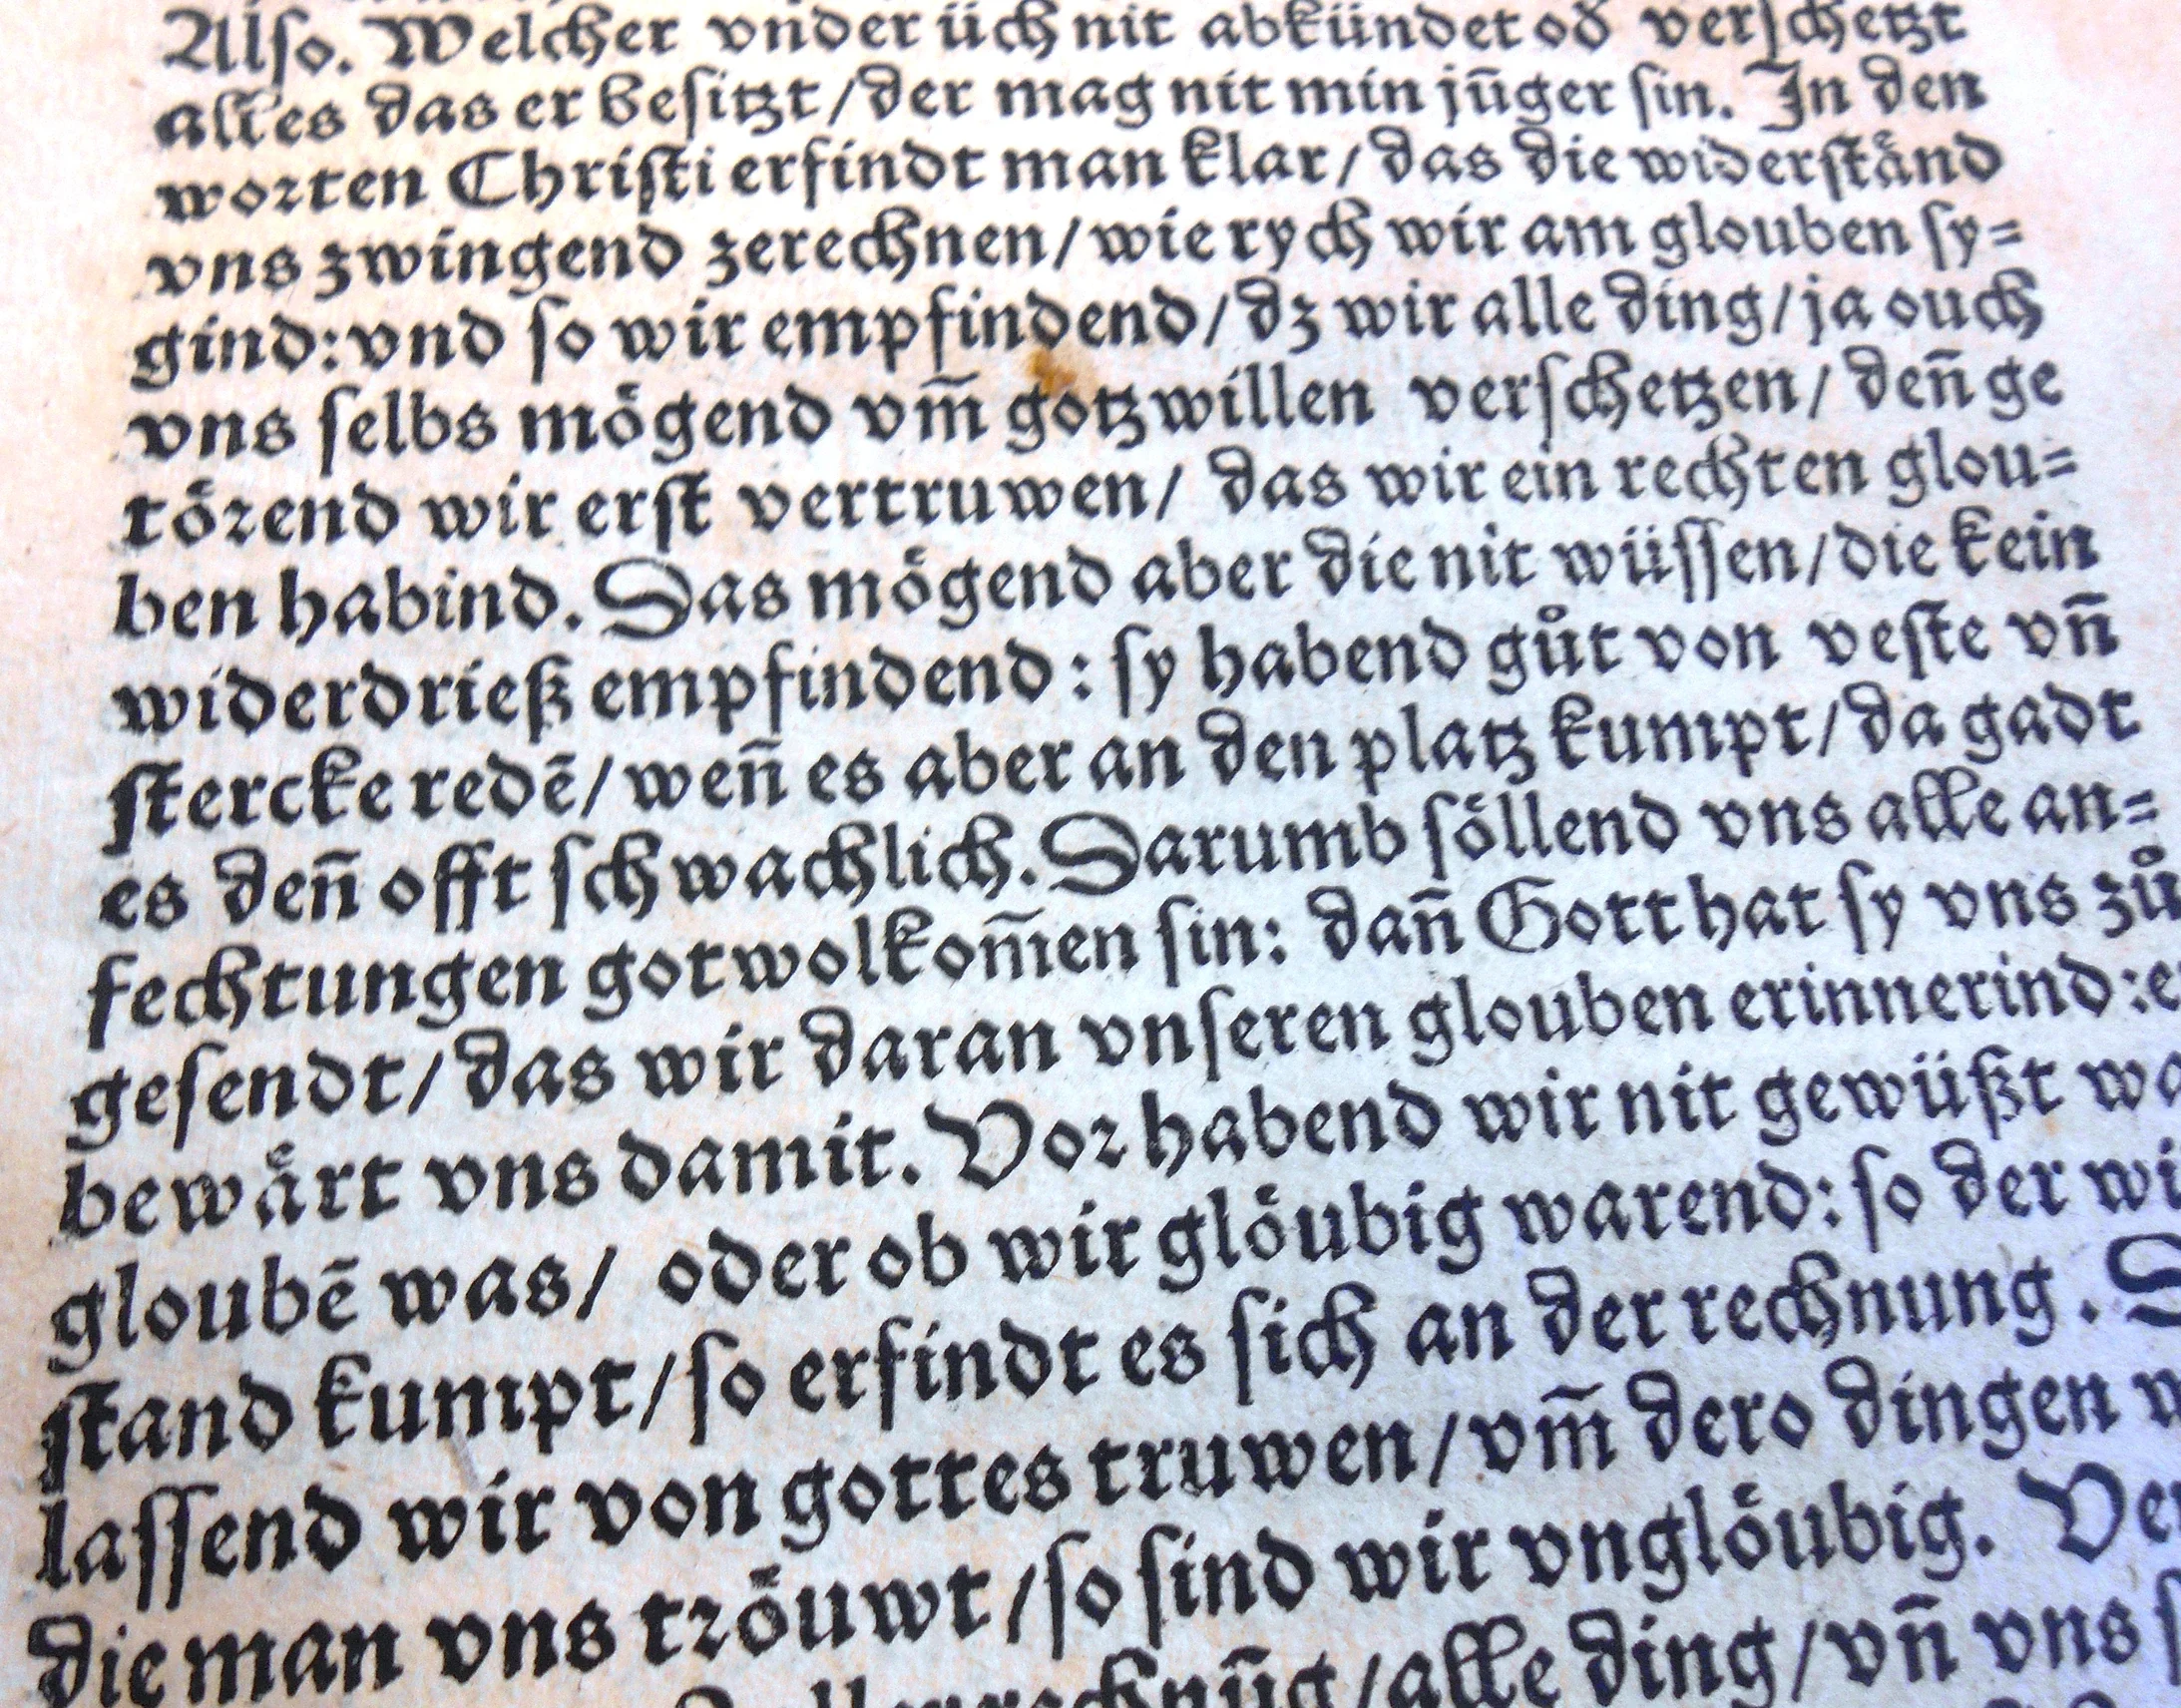 Also. Welcher vnder üch nit abkündet od verschetzt
alles das er besitzt/der mag nit min jūger sin. In den
worten Christi erfindt man klar/das die widerständ
vns zwingend zerechnen/wie rych wir am glouben sy=
gind:vnd so wir empfindend/dz wir alle ding/ja ouch
vns selbs mögend vm̄ gotzwillen verschetzen/ deñ ge
törend wir erst vertruwen/ das wir ein rechten glou=
ben habind. Das mögend aber die nit wüssen/die kein
widerdrieß empfindend: sy habend gůt von veste vñ
stercke redē/weñ es aber an den platz kumpt/da gadt
es deñ offt schwachlich. Darumb söllend vns alle an=
fechtungen gotwolkom̄en sin: dañ Gott hat sy vns zů
gesendt/das wir daran vnseren glouben erinnerind:
bewärt vns damit. Vor habend wir nit gewüßt
gloubē was/ oder ob wir glöubig warend: so der
stand kumpt/so erfindt es sich an der rechnung.
lassend wir von gottes truwen/vm̄ dero dingen
die man vns tröuwt/so sind wir vnglöubig.
/alle ding/vñ vns